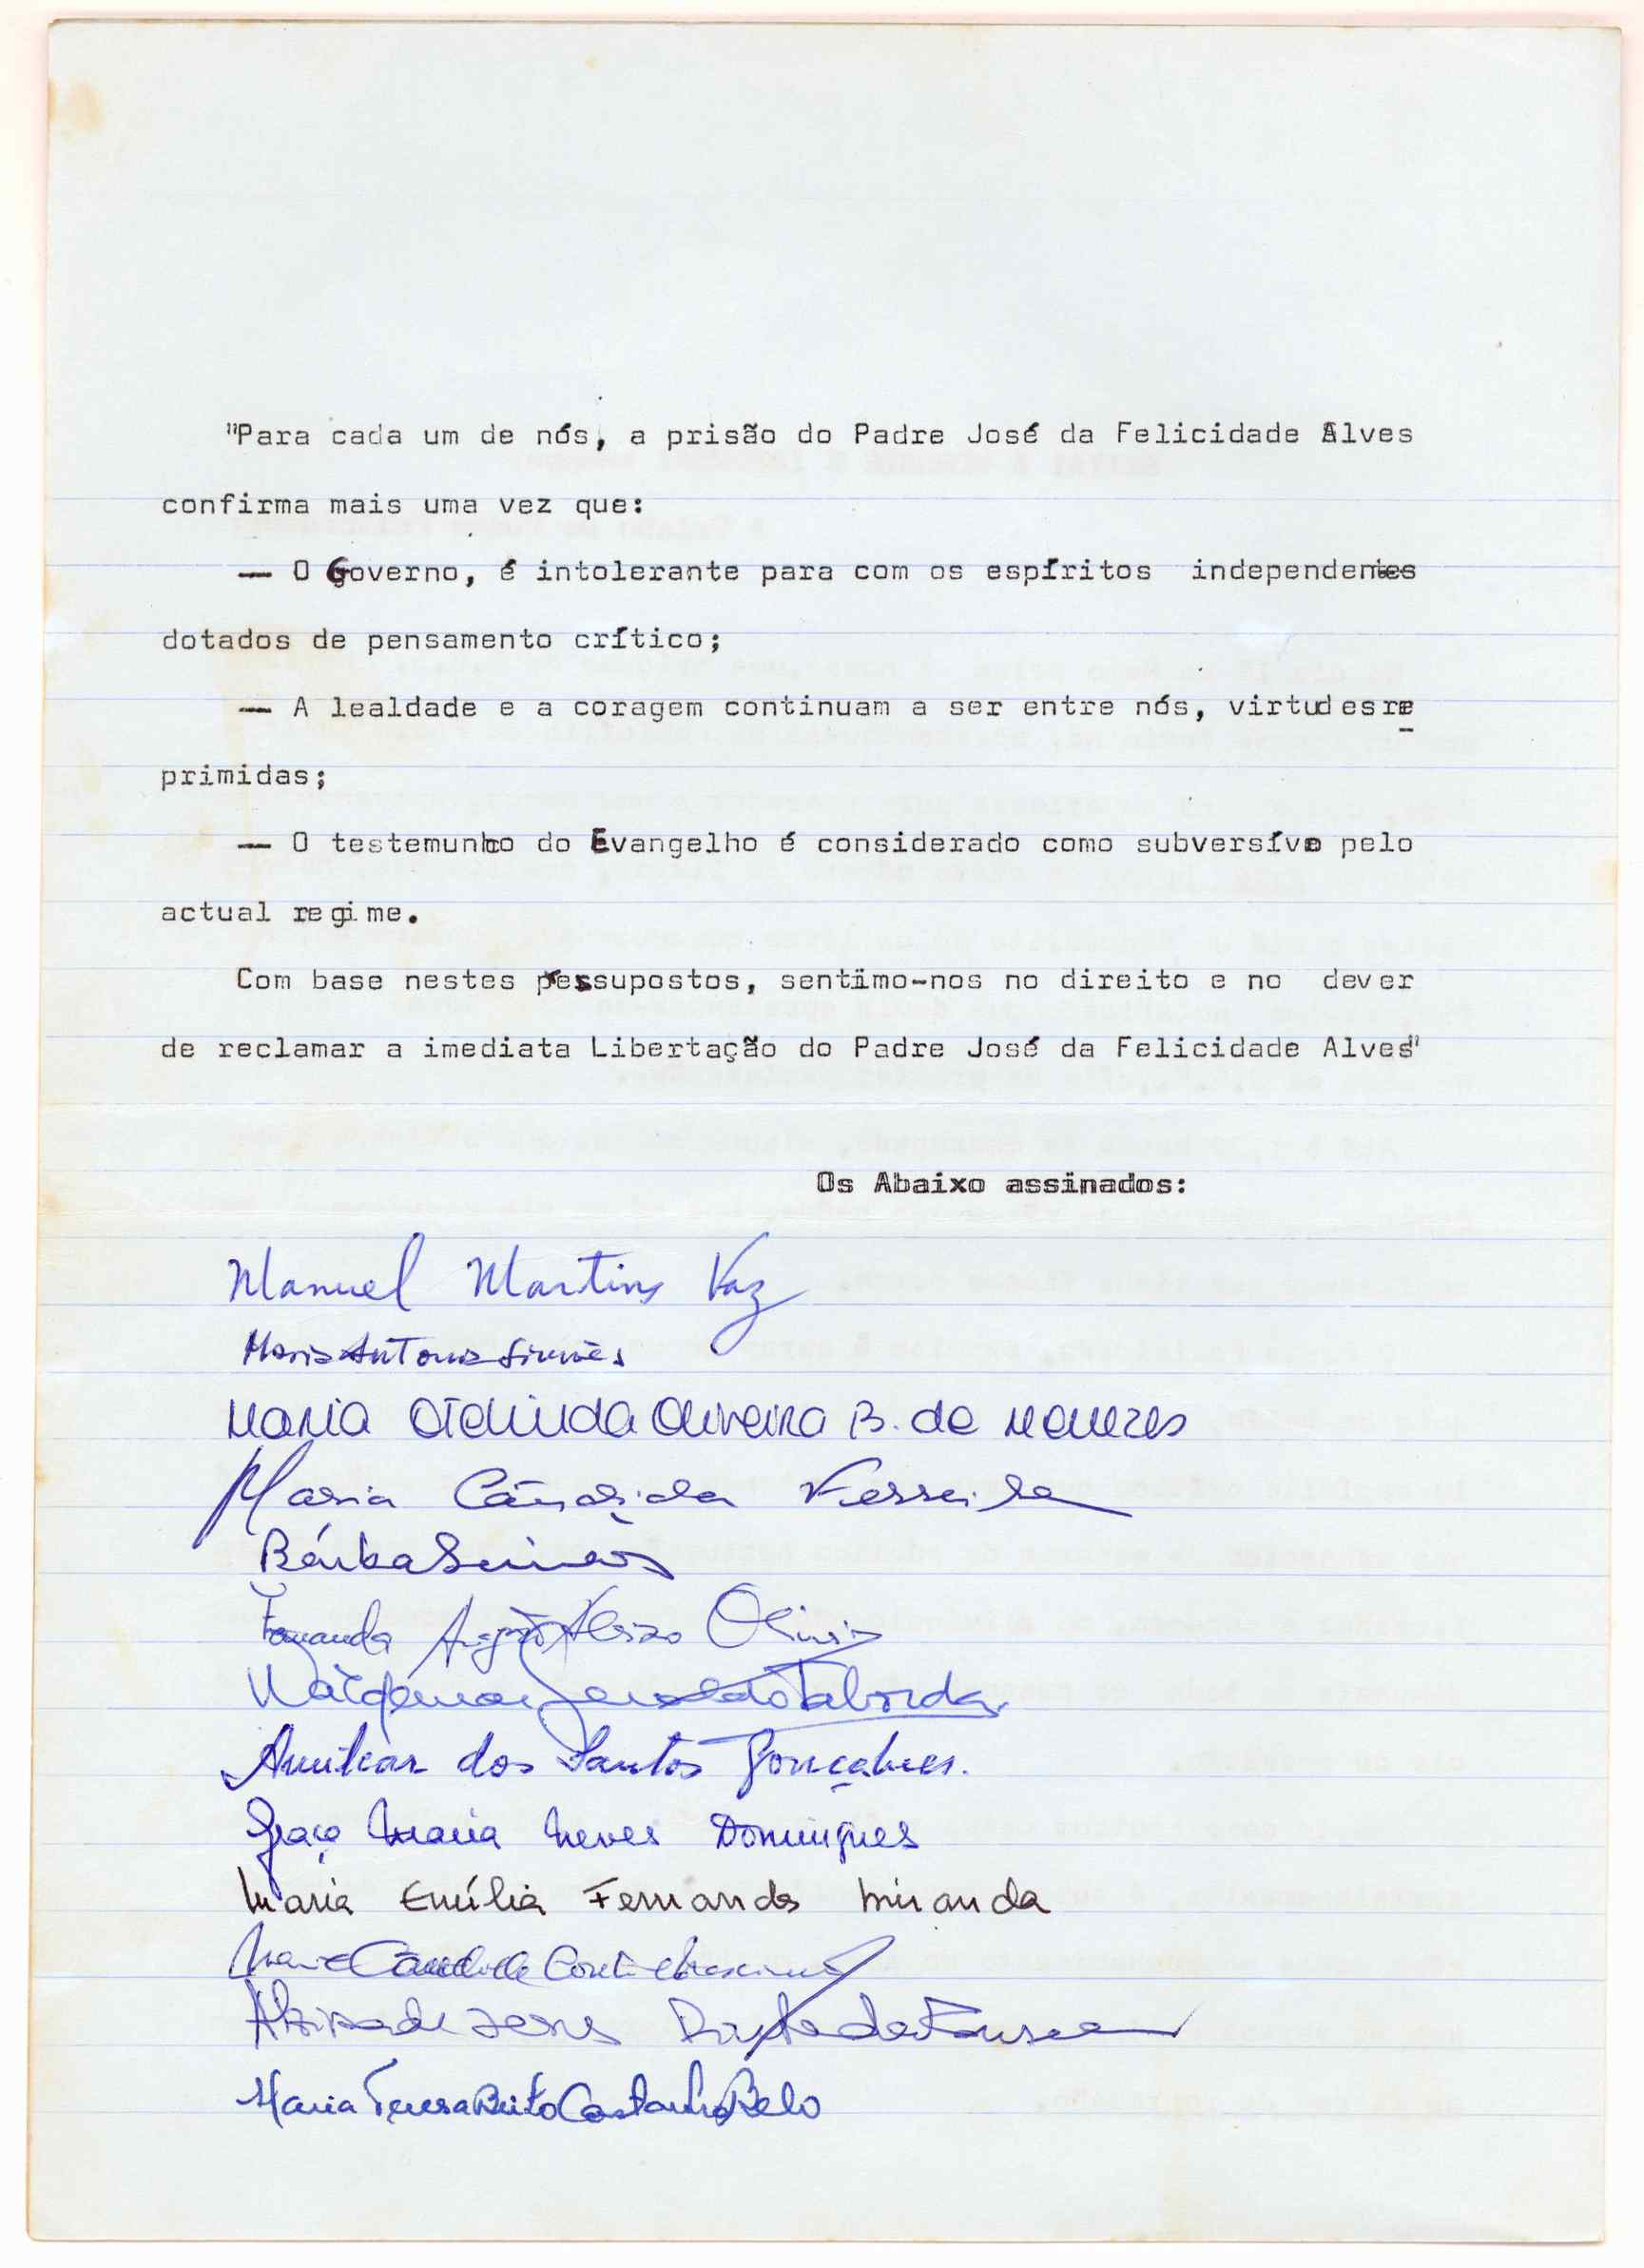 "Para cada um de nós, a prisão do Padre José da Felicidade Alves
confirma mais uma vez que:
— O Governo, é intolerante para com os espíritos independentes
dotados de pensamento crítico;
— A lealdade e a coragem continuam a ser entre nós, virtudes re
primidas;
— O testemunho do Evangelho é considerado como subversívo pelo
actual regime.
Com base nestes pressupostos, sentimo-nos no direito e no dever
de reclamar a imediata Libertação do Padre José da Felicidade Alves"
Os Abaixo assinados:
Manuel Martins Vaz
Maria Antonia Simões
Maria Otelinda Oliveira B. de Menezes
Maria Cândida Ferreira
Simões
Fernanda Oliveira
Taborda
Amilcar dos Santos Gonçalves.
Graça Maria Neves Domingues
Maria Emília Fernandes Miranda
Maria
Alzira de Jesus da Fonseca
Maria Teresa Brito Castanho Belo